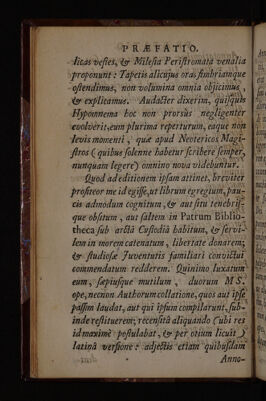 PRÆFATIO.
licas vestes, & Milesia Peristromata venalia
proponunt: Tapetis alicujus oras fimbriamque
ostendimus, non volumina omnia objicimus
& explicamus. Audacter dixerim, quisquis
Hypomnema hoc non prorsus negligenter
evolverit, eum plurima reperturum, eaque non
levis momenti, quæ apud Neotericos Magi-
stros (quibus solenne habetur scribere semper,
nunquam legere) omnino nova videbuntur.
Quod ad editionem ipsam attinet, breviter
profiteor me id egisse, ut librum egregium, pau-
cis admodum cognitum, & aut situ tenebris-
que obsitum, aut saltem in Patrum Biblio-
theca sub arctâ Custodiâ habitum, & servi-
lem in morem catenatum, libertate donarem;
& studiosæ Juventutis familiari convictui
commendatum redderem. Quinimo luxatum
eum, sæpiusque mutilum, duorum MS.
ope, necnon Authorum collatione, quos aut ipse
passim laudat, aut qui ipsum compilarunt, sub-
inde restituerem; recensitâ aliquando (ubi res
id maximè postulabat, & per otium licuit)
latinâ versione: adjectis etiam quibusdam
Anno-